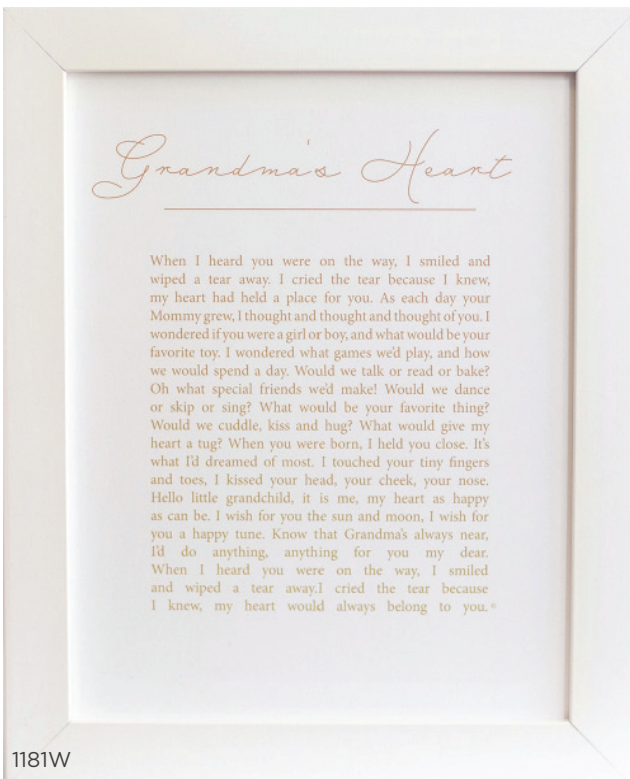 Grandma's Heart
When I heard you were on the way, I smiled and
wiped a tear away. I cried the tear because I knew,
my heart had held a place for you. As each day your
Mommy grew, I thought and thought and thought of you. I
wondered if you were a girl or boy, and what would be your
favorite toy. I wondered what games we'd play, and how
we would spend a day. Would we talk or read or bake?
Oh what special friends we'd make! Would we dance
or skip or sing? What would be your favorite thing?
Would we cuddle, kiss and hug? What would give my
heart a tug? When you were born, I held you close. It's
what I'd dreamed of most. I touched your tiny fingers
and toes, I kissed your head, your cheek, your nose.
Hello little grandchild, it is me, my heart as happy
as can be. I wish for you the sun and moon, I wish for
you a happy tune. Know that Grandma's always near,
I'd do anything, anything for you my dear.
When I heard you were on the way, I smiled
and wiped a tear away.I cried the tear because
I knew, my heart would always belong to you.©
1181W